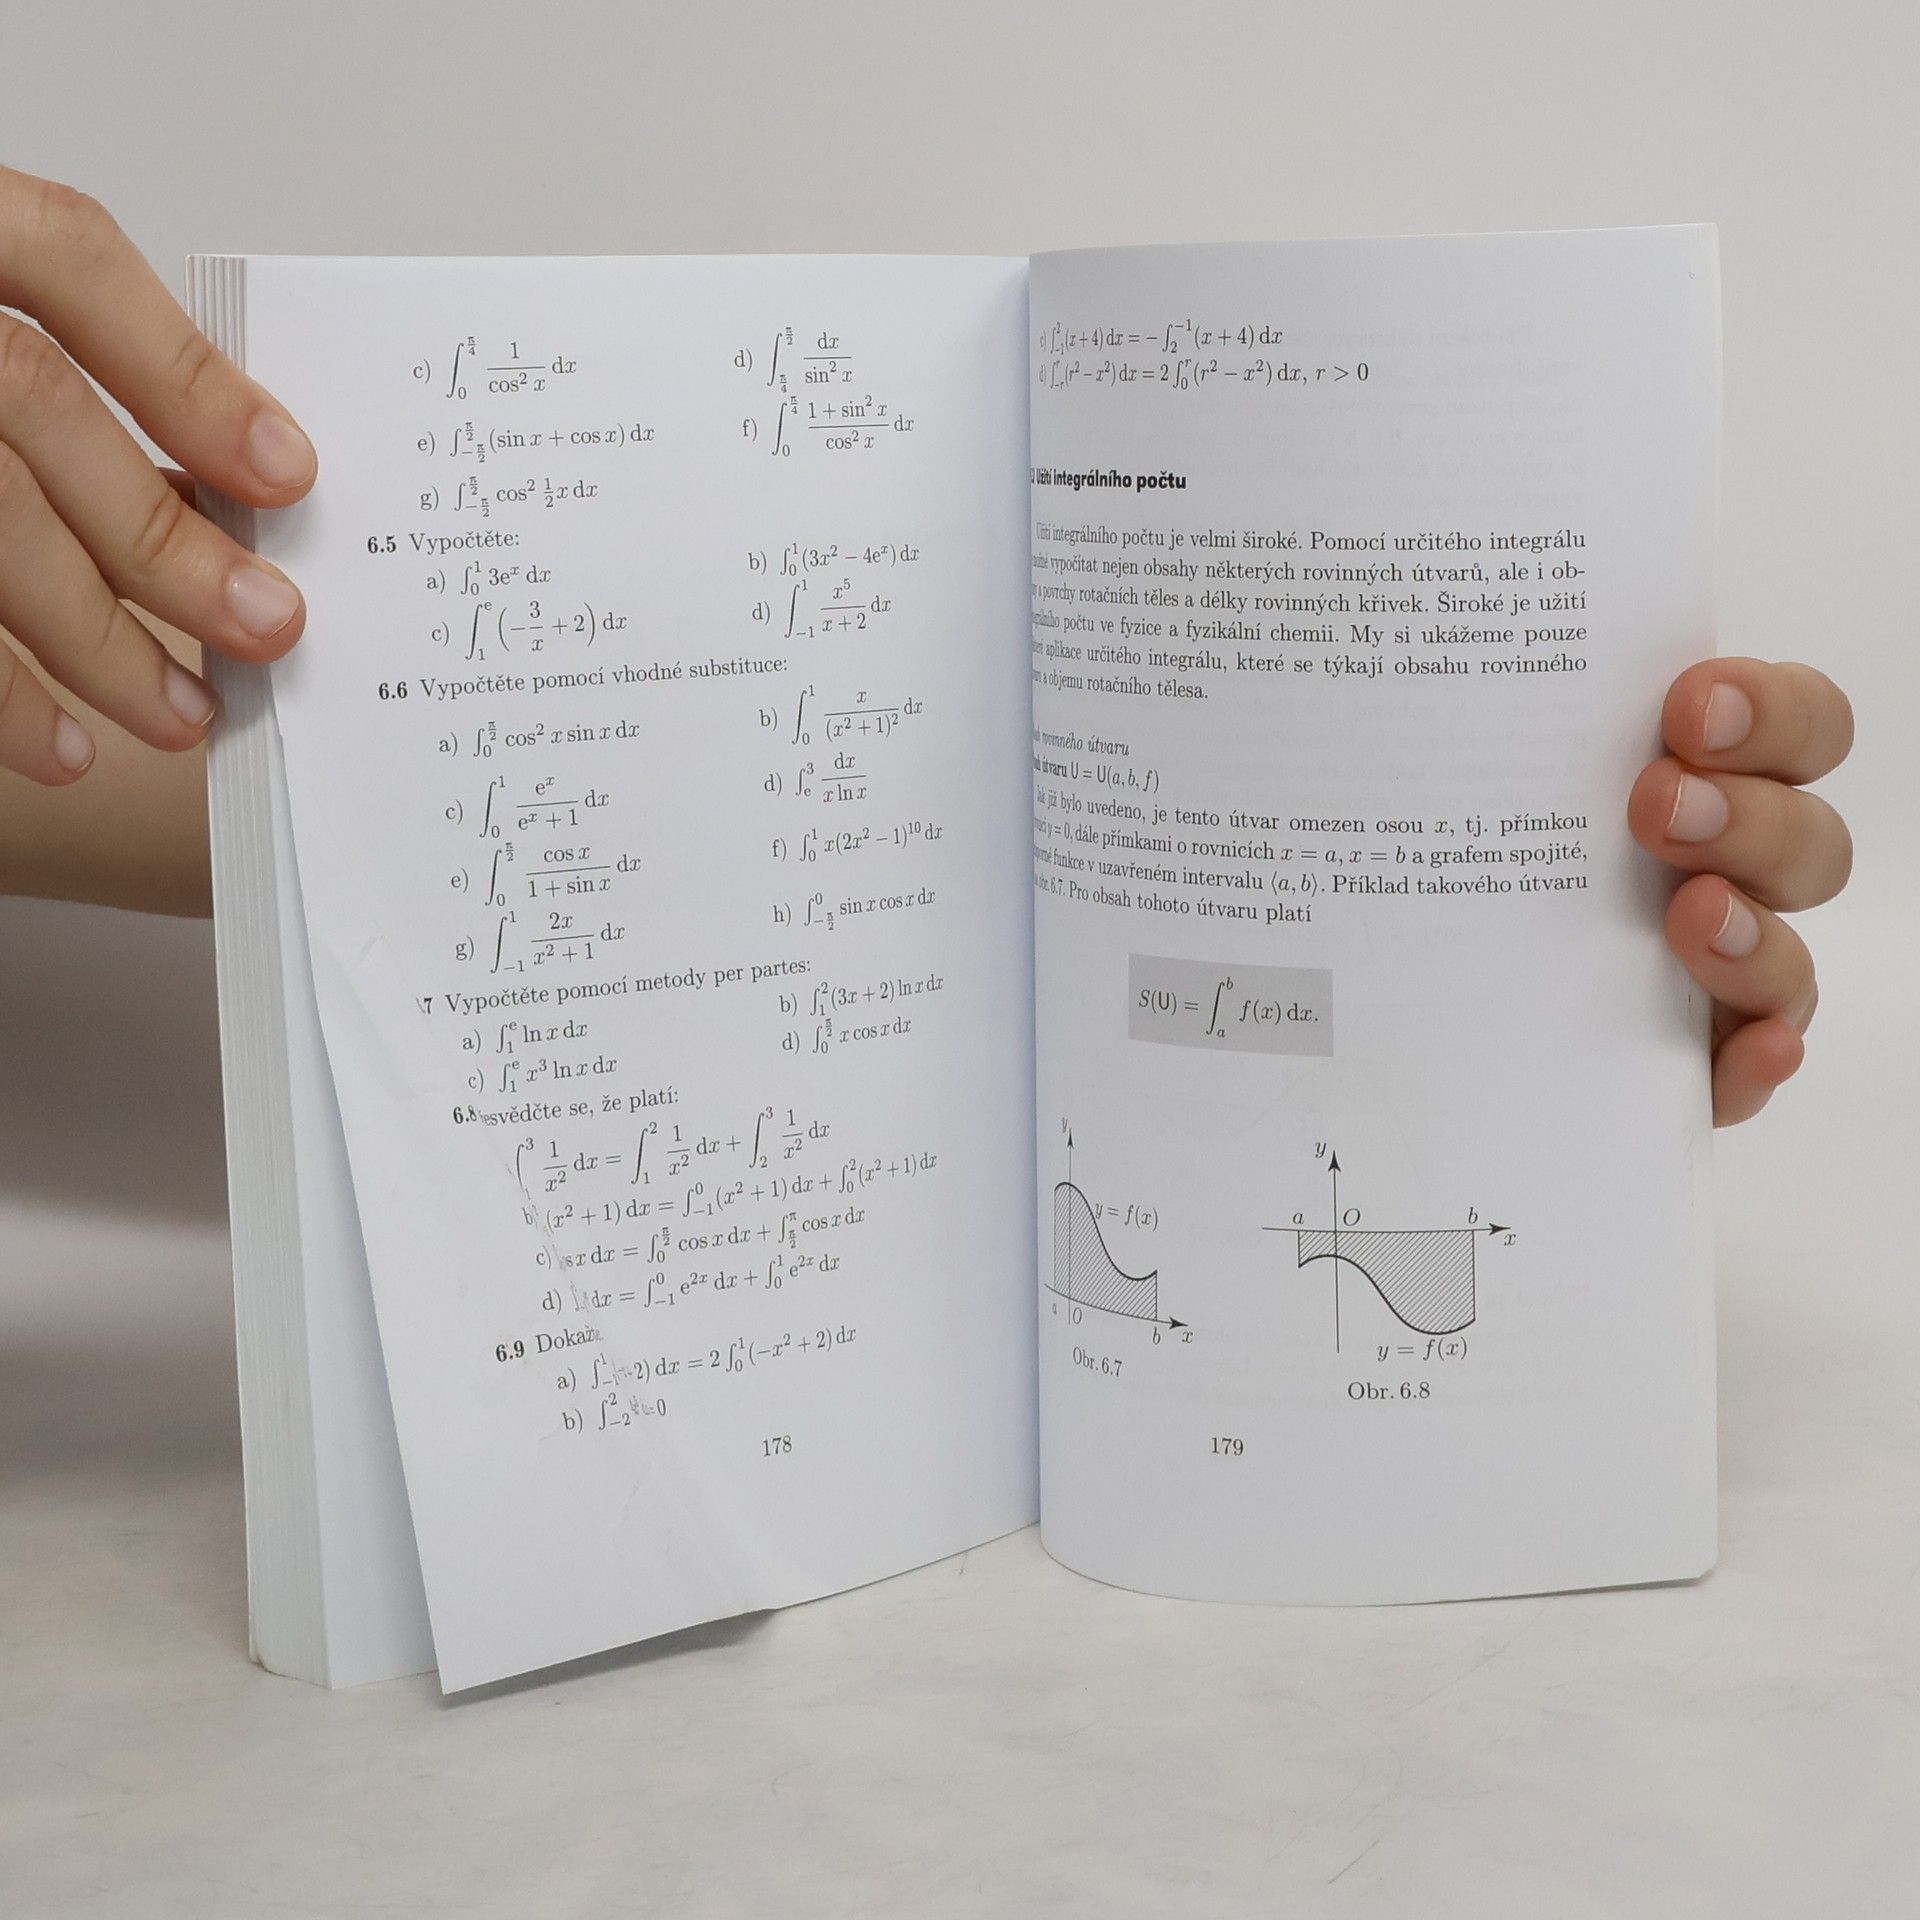 c) ∫_0^{π/4} 1/cos² x dx d) ∫_{π/4}^{π/2} dx/sin² x
e) ∫_{-π/2}^{π/2} (sin x + cos x) dx f) ∫_0^{π/4} (1 + sin² x)/cos² x dx
g) ∫_{-π/2}^{π/2} cos² ½x dx
6.5 Vypočtěte:
a) ∫_0^1 3e^x dx b) ∫_0^1 (3x² − 4e^x) dx
c) ∫_1^e (−3/x + 2) dx d) ∫_{-1}^1 x⁵/(x + 2) dx
6.6 Vypočtěte pomocí vhodné substituce:
a) ∫_0^{π/2} cos² x sin x dx b) ∫_0^1 x/(x² + 1)² dx
c) ∫_0^1 e^x/(e^x + 1) dx d) ∫_e^3 dx/(x ln x)
e) ∫_0^{π/2} cos x/(1 + sin x) dx f) ∫_0^1 x(2x² − 1)^{10} dx
g) ∫_{-1}^1 2x/(x² + 1) dx h) ∫_{-π/2}^0 sin x cos x dx
7 Vypočtěte pomocí metody per partes:
a) ∫_1^e ln x dx b) ∫_1^2 (3x + 2) ln x dx
c) ∫_1^e x³ ln x dx d) ∫_0^{π/2} x cos x dx
6.8 se, že platí:
∫_1^3 1/x² dx = ∫_1^2 1/x² dx + ∫_2^3 1/x² dx
b) (x² + 1) dx = ∫_{-1}^0 (x² + 1) dx + ∫_0^2 (x² + 1) dx
c) s x dx = ∫_0^{π/2} cos x dx + ∫_{π/2}^π cos x dx
d) dx = ∫_{-1}^0 e^{2x} dx + ∫_0^1 e^{2x} dx
6.9
a) ∫_{-1}^1 2) dx = 2 ∫_0^1 (−x² + 2) dx
b) ∫_{-2}^2 = 0
178
c) ∫_{-1}^2 (x + 4) dx = − ∫_2^{-1} (x + 4) dx
d) ∫_{-r}^r (r² − x²) dx = 2 ∫_0^r (r² − x²) dx, r > 0
Užití integrálního počtu
Užití integrálního počtu je velmi široké. Pomocí určitého integrálu
vypočítat nejen obsahy některých rovinných útvarů, ale i ob-
povrchy rotačních těles a délky rovinných křivek. Široké je užití
počtu ve fyzice a fyzikální chemii. My si ukážeme pouze
aplikace určitého integrálu, které se týkají obsahu rovinného
a objemu rotačního tělesa.
rovinného útvaru
útvaru U = U(a, b, f)
Jak již bylo uvedeno, je tento útvar omezen osou x, tj. přímkou
y = 0, dále přímkami o rovnicích x = a, x = b a grafem spojité,
funkce v uzavřeném intervalu ⟨a, b⟩. Příklad takového útvaru
obr. 6.7. Pro obsah tohoto útvaru platí
S(U) = ∫_a^b f(x) dx.
y
y = f(x)
a O b x
Obr. 6.7
y
a O b x
y = f(x)
Obr. 6.8
179